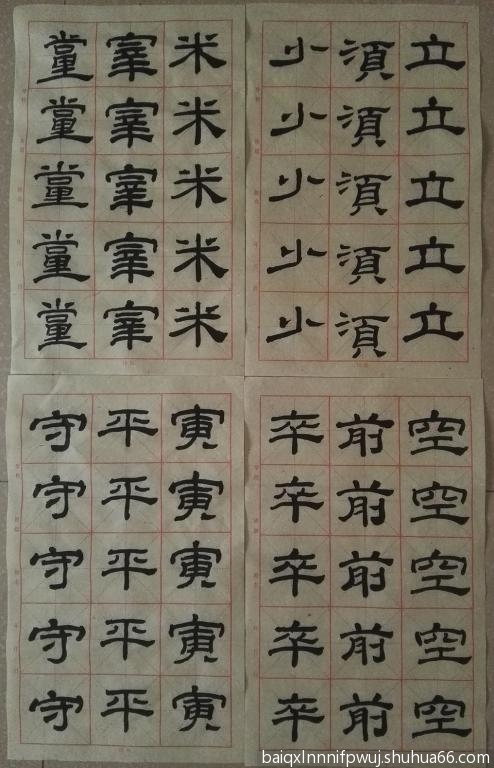 立立立立立
須須須須須
小小小小小
米米米米米
宰宰宰宰宰
空空空空空
前前前前前
卒卒卒卒卒
寅寅寅寅寅
平平平平平
守守守守守
baiqxlnnnifpwuj.shuhua66.com